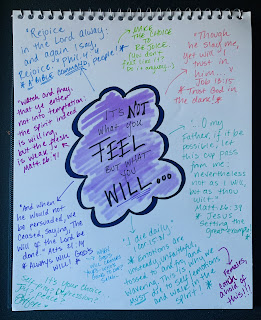 "Rejoice
in the Lord alway:
and again I say,
Rejoice." Phil. 4:4
*A Bible command, people!
MAKE the
CHOICE to
REJOICE.
You don't
feel like it?
Do it anyway. :)
"Though
he slay me,
yet will I
trust in
Him..."
Job 13:15
*Trust God in
the dark! *
"Watch and pray,
that ye enter
not into temptation;
the spirit indeed
is willing,
but the flesh
is weak."
Matt. 26:41
IT'S NOT
What you
FEEL
BUT WHAT
YOU
WILL...
"...O my
Father, if it be
possible, let
this cup pass
from me;
nevertheless
not as I will,
but as thou
wilt."
Matt. 26:39
*Jesus
setting the
great example*
"And when
he would not
be persuaded, we
ceased, saying, The
will of the Lord be
done." Acts 21:14
*Always Will God's
Will! *
"I die daily."
1 Cor. 15:31
*Emotions are
unsteady, unfaithful,
tossed to and fro,
wavering. This is why we
MUST die to self/emotions
and live by the
Spirit!*
Females,
look
aware of
this!!!
It's your choice